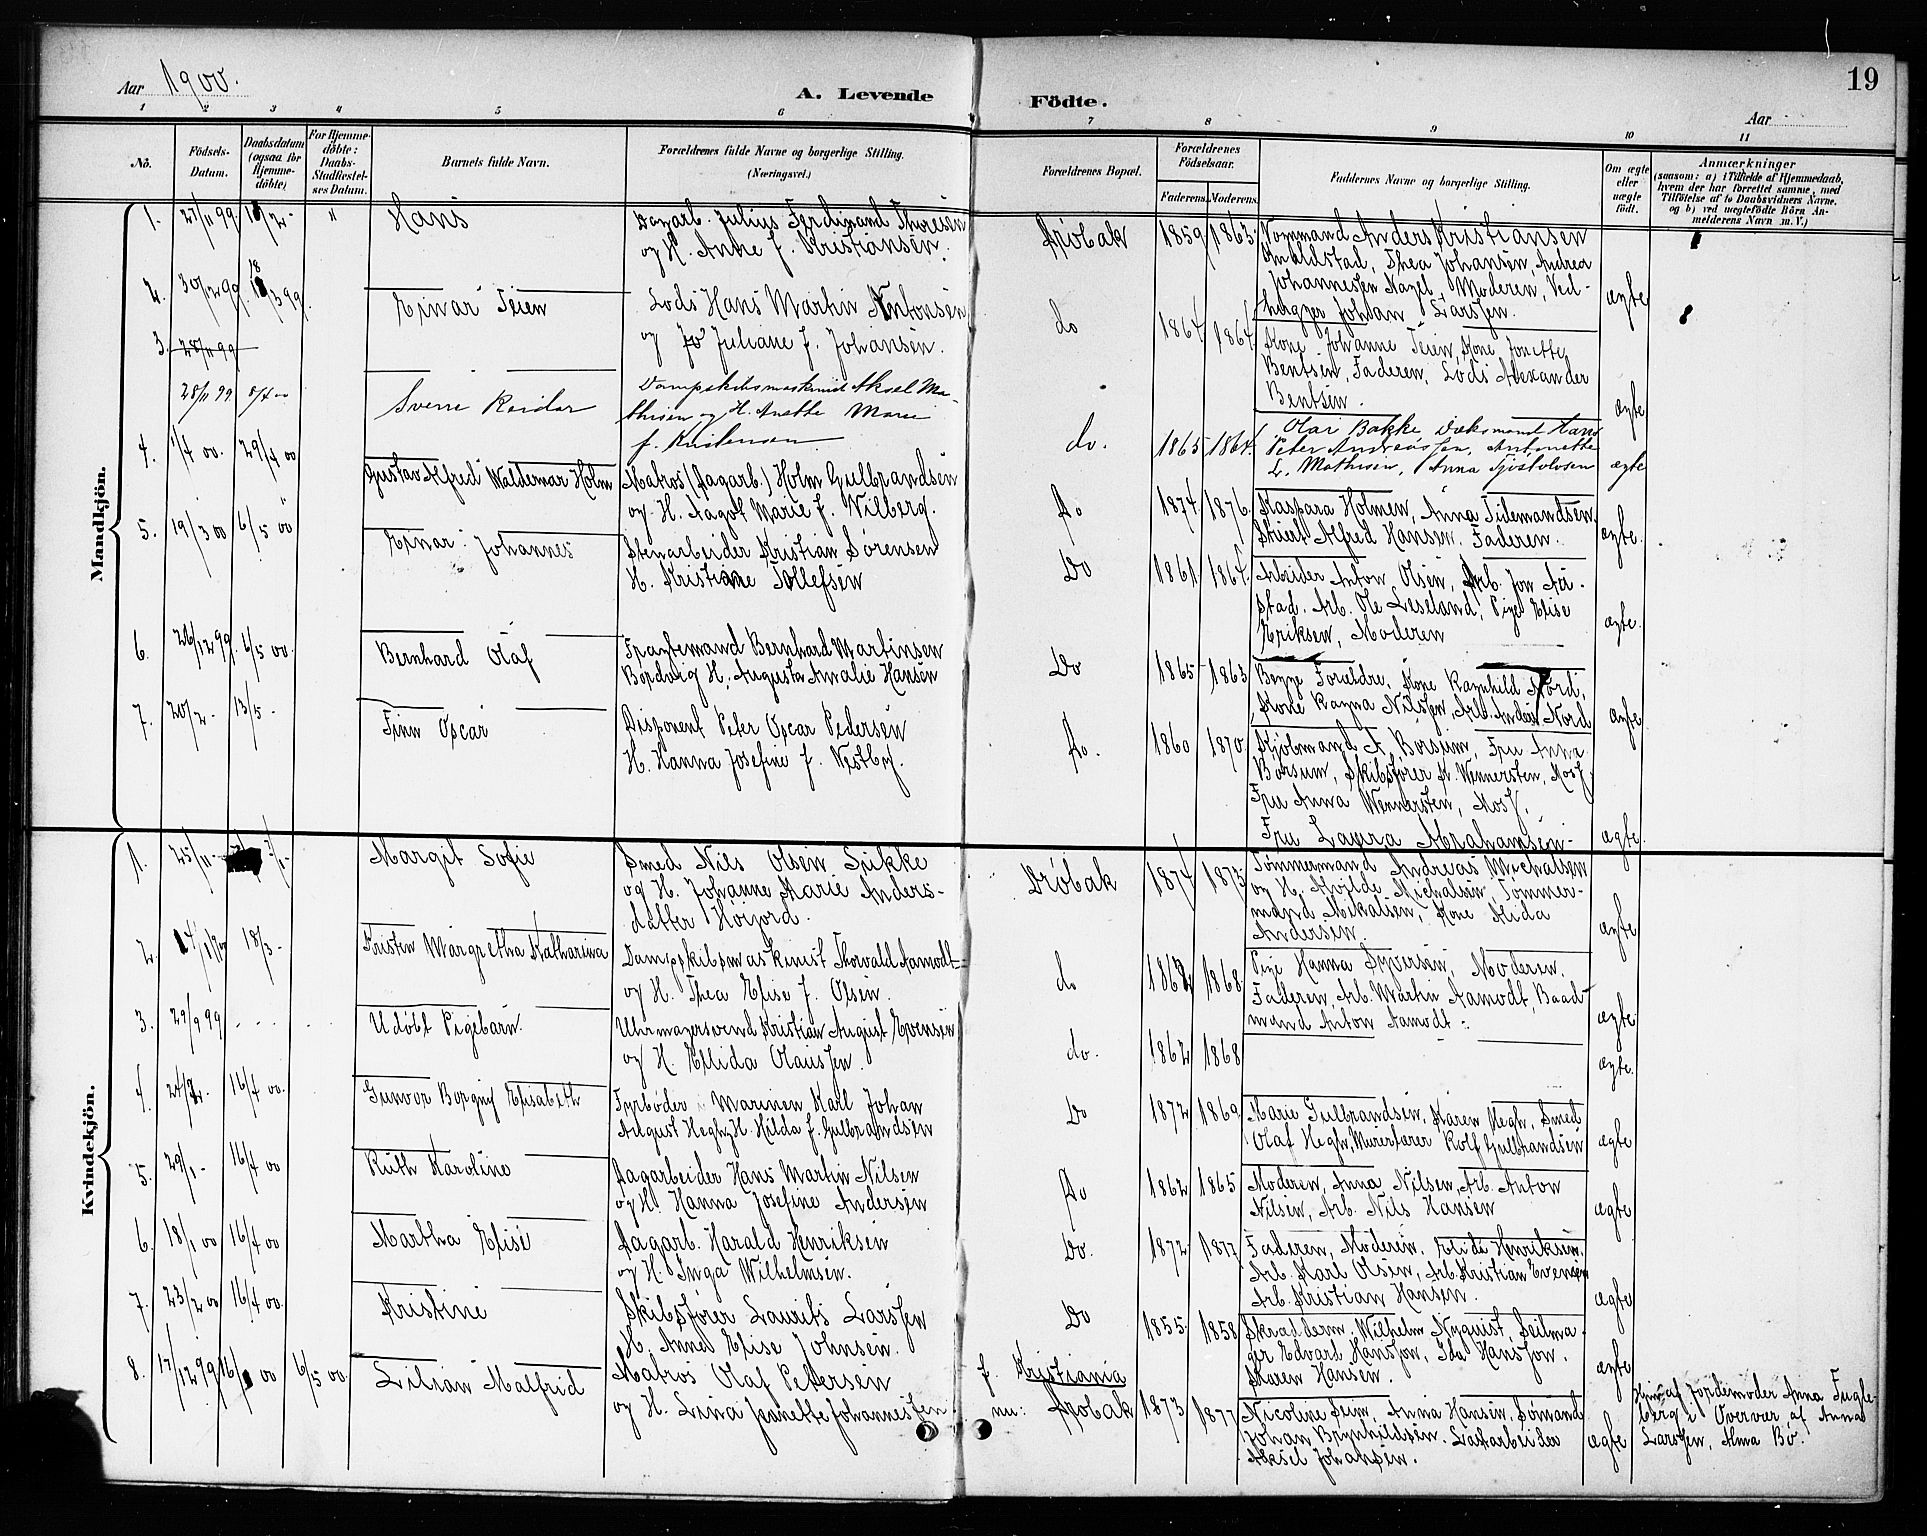 19
Aar 1900.
A. Levende Födte.
Aar
1 2 3 4 5 6 7 8 9 10 11
No.
Födsels-Datum.
Daabsdatum (ogsaa for Hjemme-döbte)
For Hjemme-döbte: Daabs-Stadfæstel-ses Datum.
Barnets fulde Navn.
Forældrenes fulde Navne og borgerlige Stilling. (Næringsvei.)
Forældrenes Bopæl.
Forældrenes Födselsaar.
Faderens. Moderens.
Faddernes Navne og borgerlige Stilling.
Om ægte eller uægte födt.
Anmærkninger
(saasom: a) i Tilfælde af Hjemmedaab,
hvem der har forrettet samme, med
Tilföielse af to Daabsvidners Navne.
og b) ved uægtefödte Börn An-
melderens Navn m. V.)
Mandkjön.
1. 27/11 99. Hans
Dagarb. Julius Ferdinand Thoresen
og H. Anne f. Kristiansen.
Drøbak 1859 1863
Tømmand Anders Kristiansen
Thea Johansen, Andrea
Johannesen Nagel, Moderen, Ved-
hugger Johan Larssen.
ægte
2. 30/12 99. 18/3 99.
Einar Teien
Lods Hans Martin Antonsen
og Juliane f. Johansen.
do 1864 1864
Kone Johanne Teien, Kone Jonette
Bentsen, Faderen, Lods Alexander
Bentsen.
ægte
3. 28/11 99
28/11 99 8/4 00
Sverre Reidar
Dampskibsmaskinist Aksel Ma-
thisen og H. Anette Marie
f. Kristensen
do. 1865 1864.
Olai Bakke Dæksmand Hans
Peter Andreassen, Antonette
L. Mathisen, Anna Gjistolvsen
ægte
4. 1/4 00. 29/4 00
Gustav Alfred Waldemar Holm
Matros (Dagarb.) Holm Gulbrandsen
og H. Aagot Marie f. Vilberg.
Do 1874 1876.
Kaspara Holmen, Anna Tidemandsen
Alfred Hansen. Faderen.
ægte.
5. 19/3 00 6/5 00
Einar Johannes
Stenarbeider Kristian Sørensen
H. Kristiane Tollefsen
Do 1861 1864.
Arbeider Anton Olsen, Arb. Jon Aa-
stad, Arb. Ole Leseland, Pige Elise
Eriksen, Moderen
ægte.
6. 26/12 99. 6/5 00.
Bernhard Olaf
Fragtemand Bernhard Martinsen
Bordvig H. Augusta Amalie Hansen
Do 1865 1863
Begge Forældre, Kone Ragnhild Nord,
Kone Ragna Nilssen, Arb. Anders Nord
ægte
7. 20/2 - 13/5 -
Finn Oscar
Disponent Peter Oscar Pedersen
H. Hanna Josefine f. Vestby.
Do. 1860 1870
Kjøbmand A. Borsum, Fru Anna
Borsum, Skibsfører K. Wennersten, Moss,
Fru Anna Wennersten, Moss.
Fru Laura Abrahamsen.
ægte.
Kvindekjön.
1. 25/11 -
Margit Sofie
Smed Nils Olsen Sukke
og H. Johanne Marie Anders-
datter Høifjord.
Drøbak 1874 1873
Tømmermand Andreas Michalsen
og H. Michalsen, Tømmer-
mand Mikalsen, Kone Alida
Andersen.
ægte
2. 14/1 00 18/3 -
Kristin Margretha Katharina
Dampskibsmaskinist Thorvald Aamodt
og H. Thea Elise f. Olsen.
do 1862 1868
Pige Hanna Syversen, Moderen.
Faderen, Arb. Martin Aamodt, Baad-
mand Anton Aamodt.
ægte
3. 29/9 99
Udøbt Pigebarn.
Uhrmagersvend Kristian August Evensen
og H. Ellida Olaussen.
do. 1862 1868
ægte.
4. 24/2 - 16/4 00.
Gunvor Borgny Elisabeth
Fyrbøder i Marinen Karl Johan
August Hegh H. Hilda f. Gulbrandsen
Do 1872 1869
Marie Gulbrandsen, Karen Hegh, Smed
Olaf Hegh, Murerlærer Rolf Gulbrandsen
ægte
5. 29/1 - 16/4 00
Ruth Karoline
Dagarbeider Hans Martin Nilsen
og H. Hanna Josefine Andersen
Do 1862 1865
Moderen, Anna Nilsen, Arb. Anton
Nilsen, Arb. Nils Hansen
ægte
6. 18/1 00 16/4 00
Martha Elise
Dagarb. Harald Henriksen
og H. Inga Wilhelmsen.
Do. 1872 1877
Faderen, Moderen, Elida Henriksen.
Arb. Karl Olsen, Arb. Kristian Evensen
Arb. Kristian Hansen.
ægte
7. 23/2 00 16/4 00.
Kristine
Skibsfører Laurits Larssen
H. Annes Elise Johnsen.
Do 1855 1858
Skrædderm. Wilhelm Nyquist, Seilma-
ger Edvard Hansson, Ida Hansson.
Maren Hansen.
ægte
8. 17/12 99 16/ 00 6/5 00
Lilian Malfrid
Matros Olaf Petersen
og H. Lina Jeanette Johannessen.
f. Kristiania
nu: Drøbak 1873 1877
Nicoline Siem, Anna Hansen, Sømand
Johan Brynhildsen. Lastarbeider
Aksel Johansen.
ægte
Hjem. af Jordemoder Anna Fugle-
berg i Overvær af Anna
Larssen, Alma Bø.